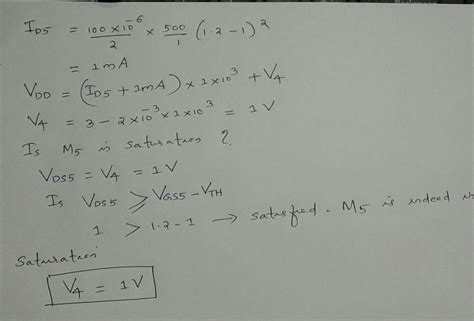 I_D5 = 100 × 10^-6 / 2 × 500 / 1 (1.2 - 1)^2
= 1 mA
V_DD = (I_D5 + 1mA) × 1 × 10^3 + V_4
V_4 = 3 - 2 × 10^-3 × 1 × 10^3 = 1 V
Is M5 in saturation ?
V_DS5 = V_4 = 1 V
Is V_DS5 ≥ V_GS5 - V_TH
1 > 1.2 - 1 → satisfied. M5 is indeed in
saturation
V_4 = 1 V